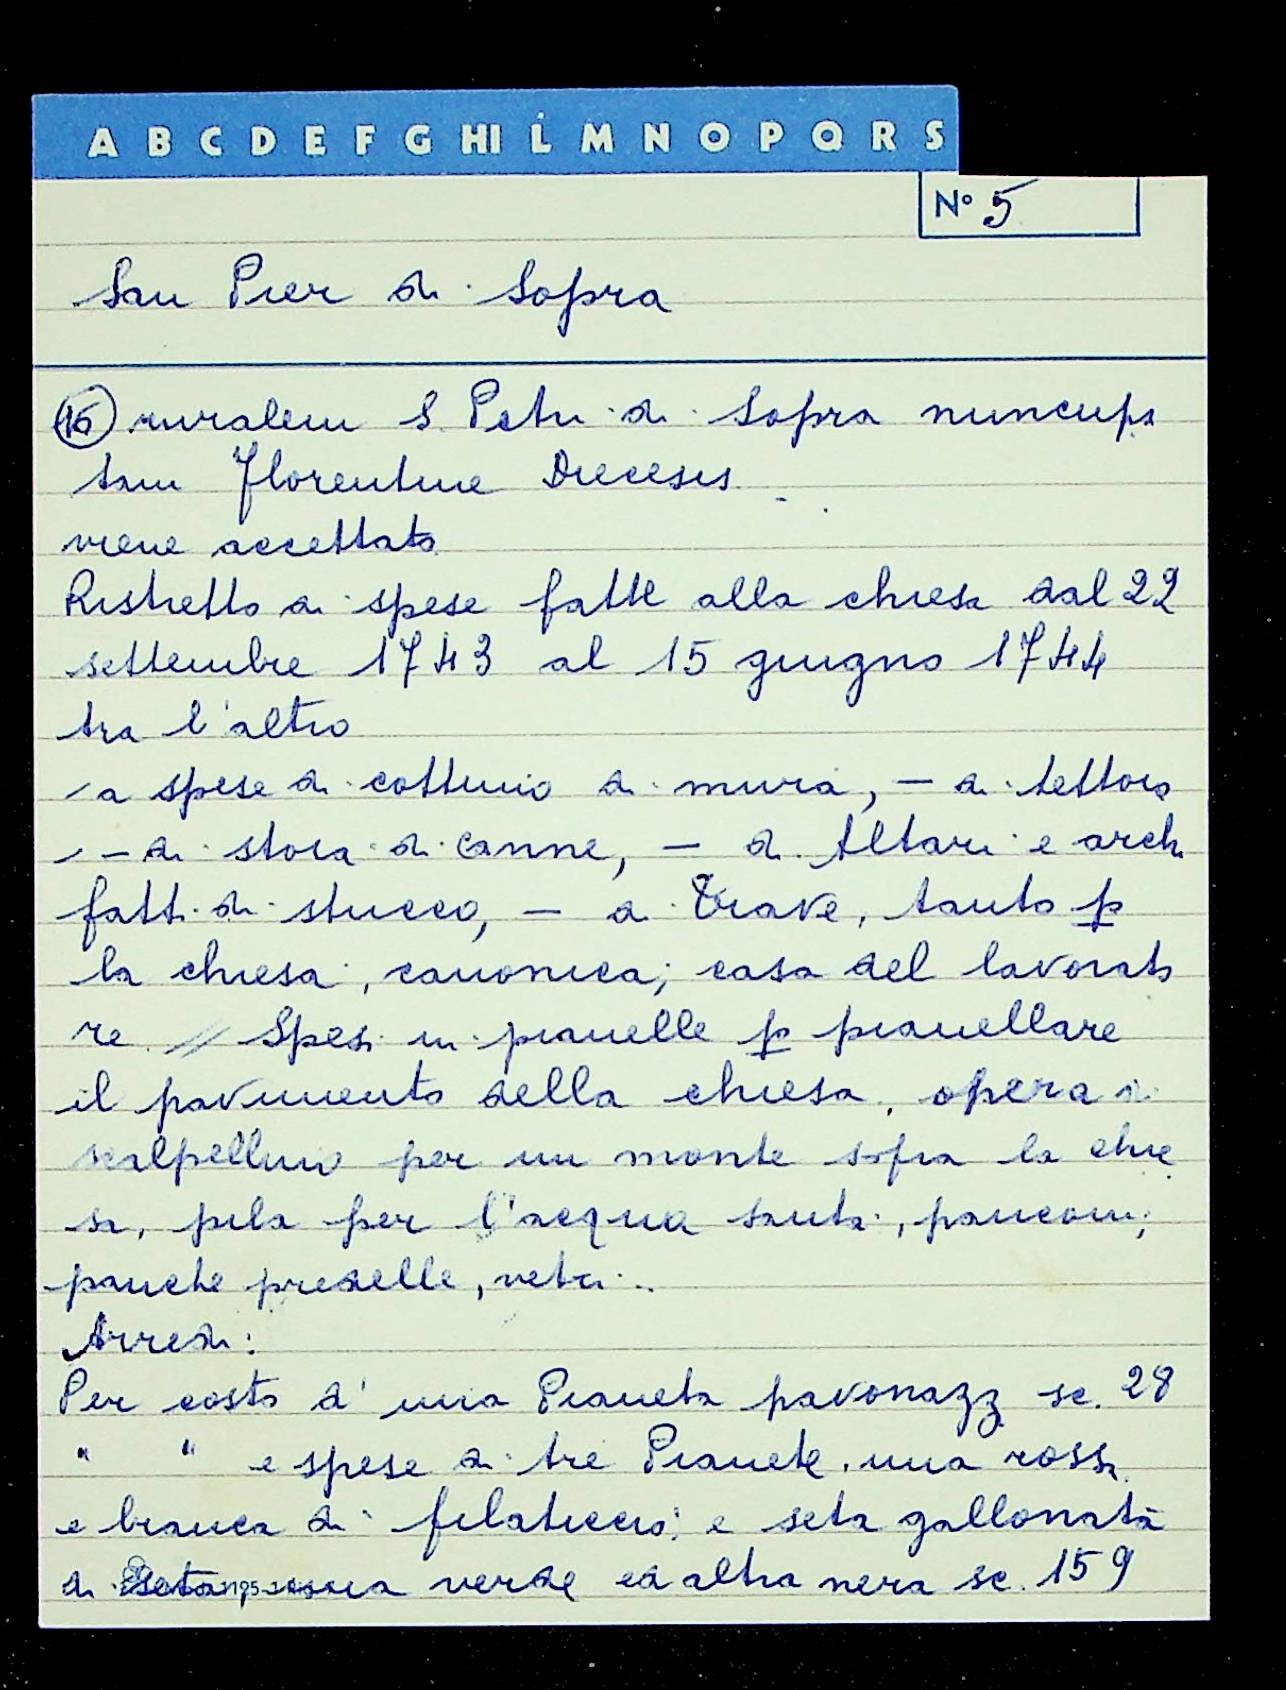 A B C D E F G HI L M N O P Q R S
N° 5
San Pier di Sopra
16 ruralem S. Petri di Sopra nuncupa
tam Florentine Diecesis
viene accettato
Ristretto di spese fatte alla chiesa dal 22
settembre 1743 al 15 giugno 1744
tra l'altro
a spese di cottimo di mura, – di tettoia
– di stoia di canne, – di Altari e archi
fatti di stucco, – di Trave, tanto p
la chiesa, canonica, casa del lavorato
re // Spesi in pianelle p pianellare
il pavimento della chiesa, opera di
scalpellino per un monte sopra la chie
sa, pila per l'acqua santa, panconi,
panche predelle, vetri..
Arredi:
Per costo d'una Pianeta pavonazz sc. 28
" " e spese di tre Pianete, una rossa
e bianca di filaticcio e seta gallonata
di seta una verde ed altra nera sc. 159